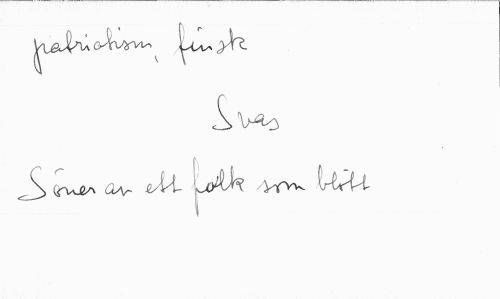 patriotism, finsk
Svas
Söner av ett folk som blött